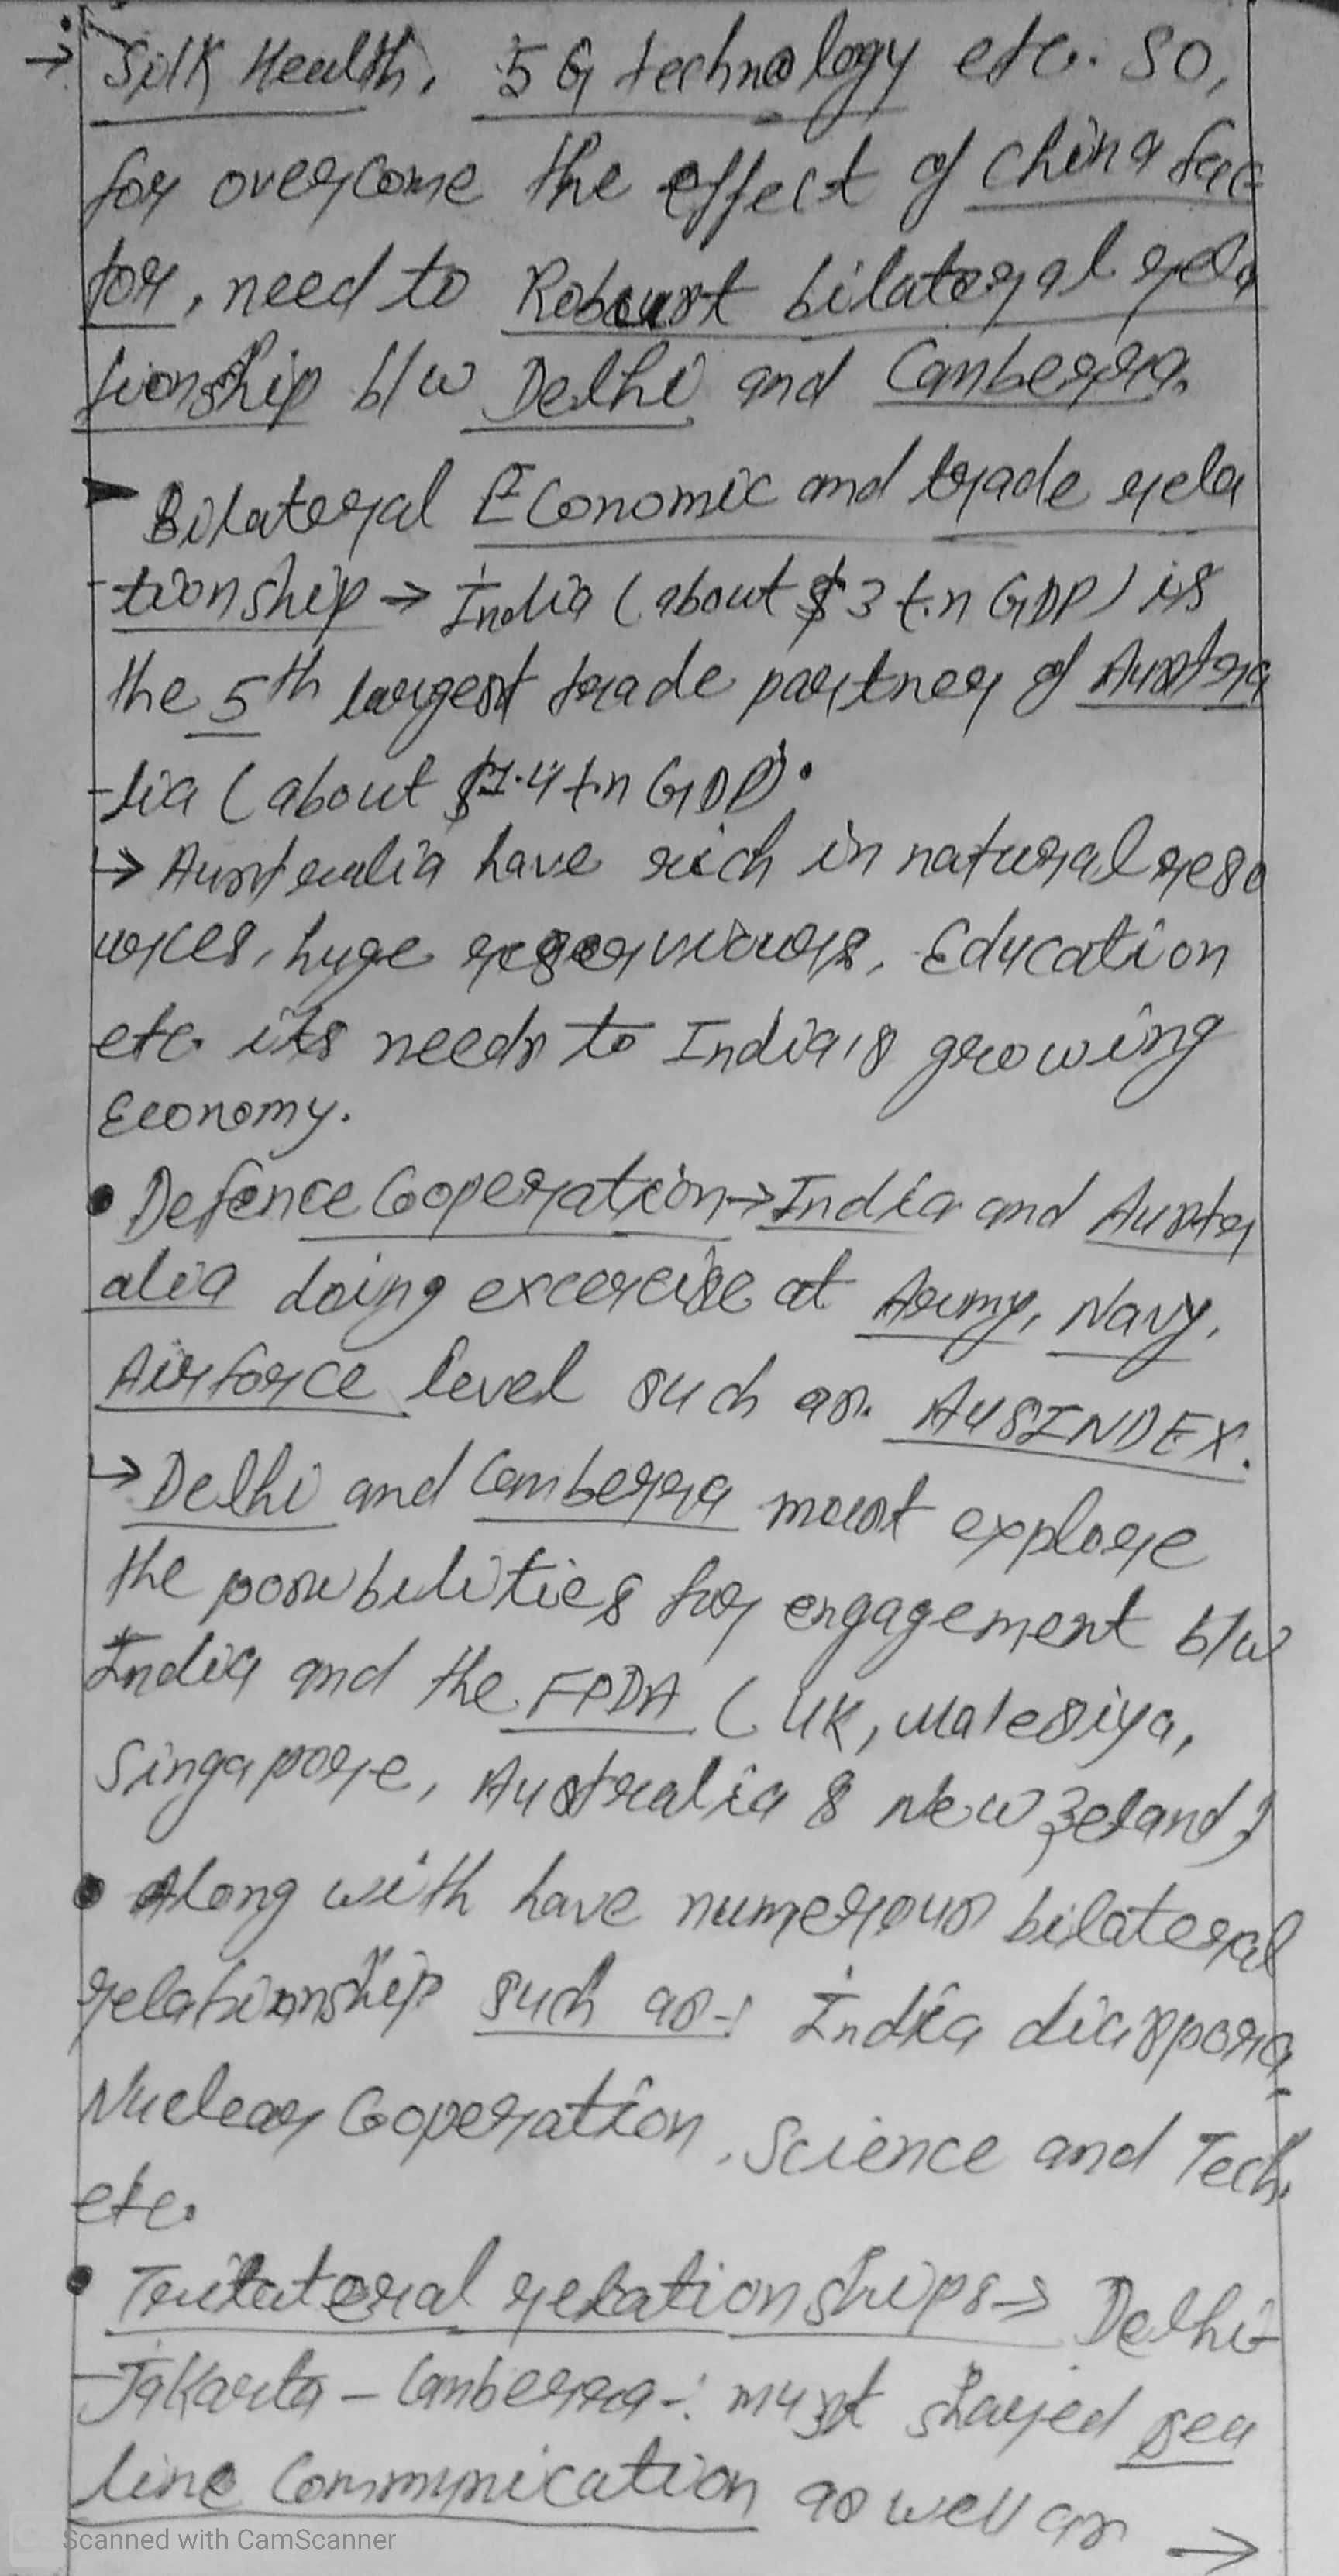 → Silk Health, 5G technology etc. So,
for overcome the effect of China fac
tor, need to Robust bilateral rela
tionship b/w Delhi and Canberra.
➤ Bilateral Economic and trade rela
-tionship → India (about $3 t.n GDP) is
the 5th largest trade partner of Austra
-lia (about $1.4 t.n GDP).
↳ Australia have rich in natural reso
urces, huge reserviours, Education
etc. its needs to India's growing
Economy.
• Defence Cooperation → India and Austr
alia doing excercise at Army, Navy,
Airforce level such as. AUSINDEX.
↳ Delhi and Canberra must explore
the possibilities for engagement b/w
India and the FPDA (UK, Malesiya,
Singapore, Australia & New Zeland)
• Along with have numerous bilateral
relationship such as-: India diaspora,
Nuclear Cooperation, Science and Tech,
etc.
• Trilateral relationships → Delhi-
-Jakarta - Canberra-: must shared sea
line Communication as well as →
Scanned with CamScanner